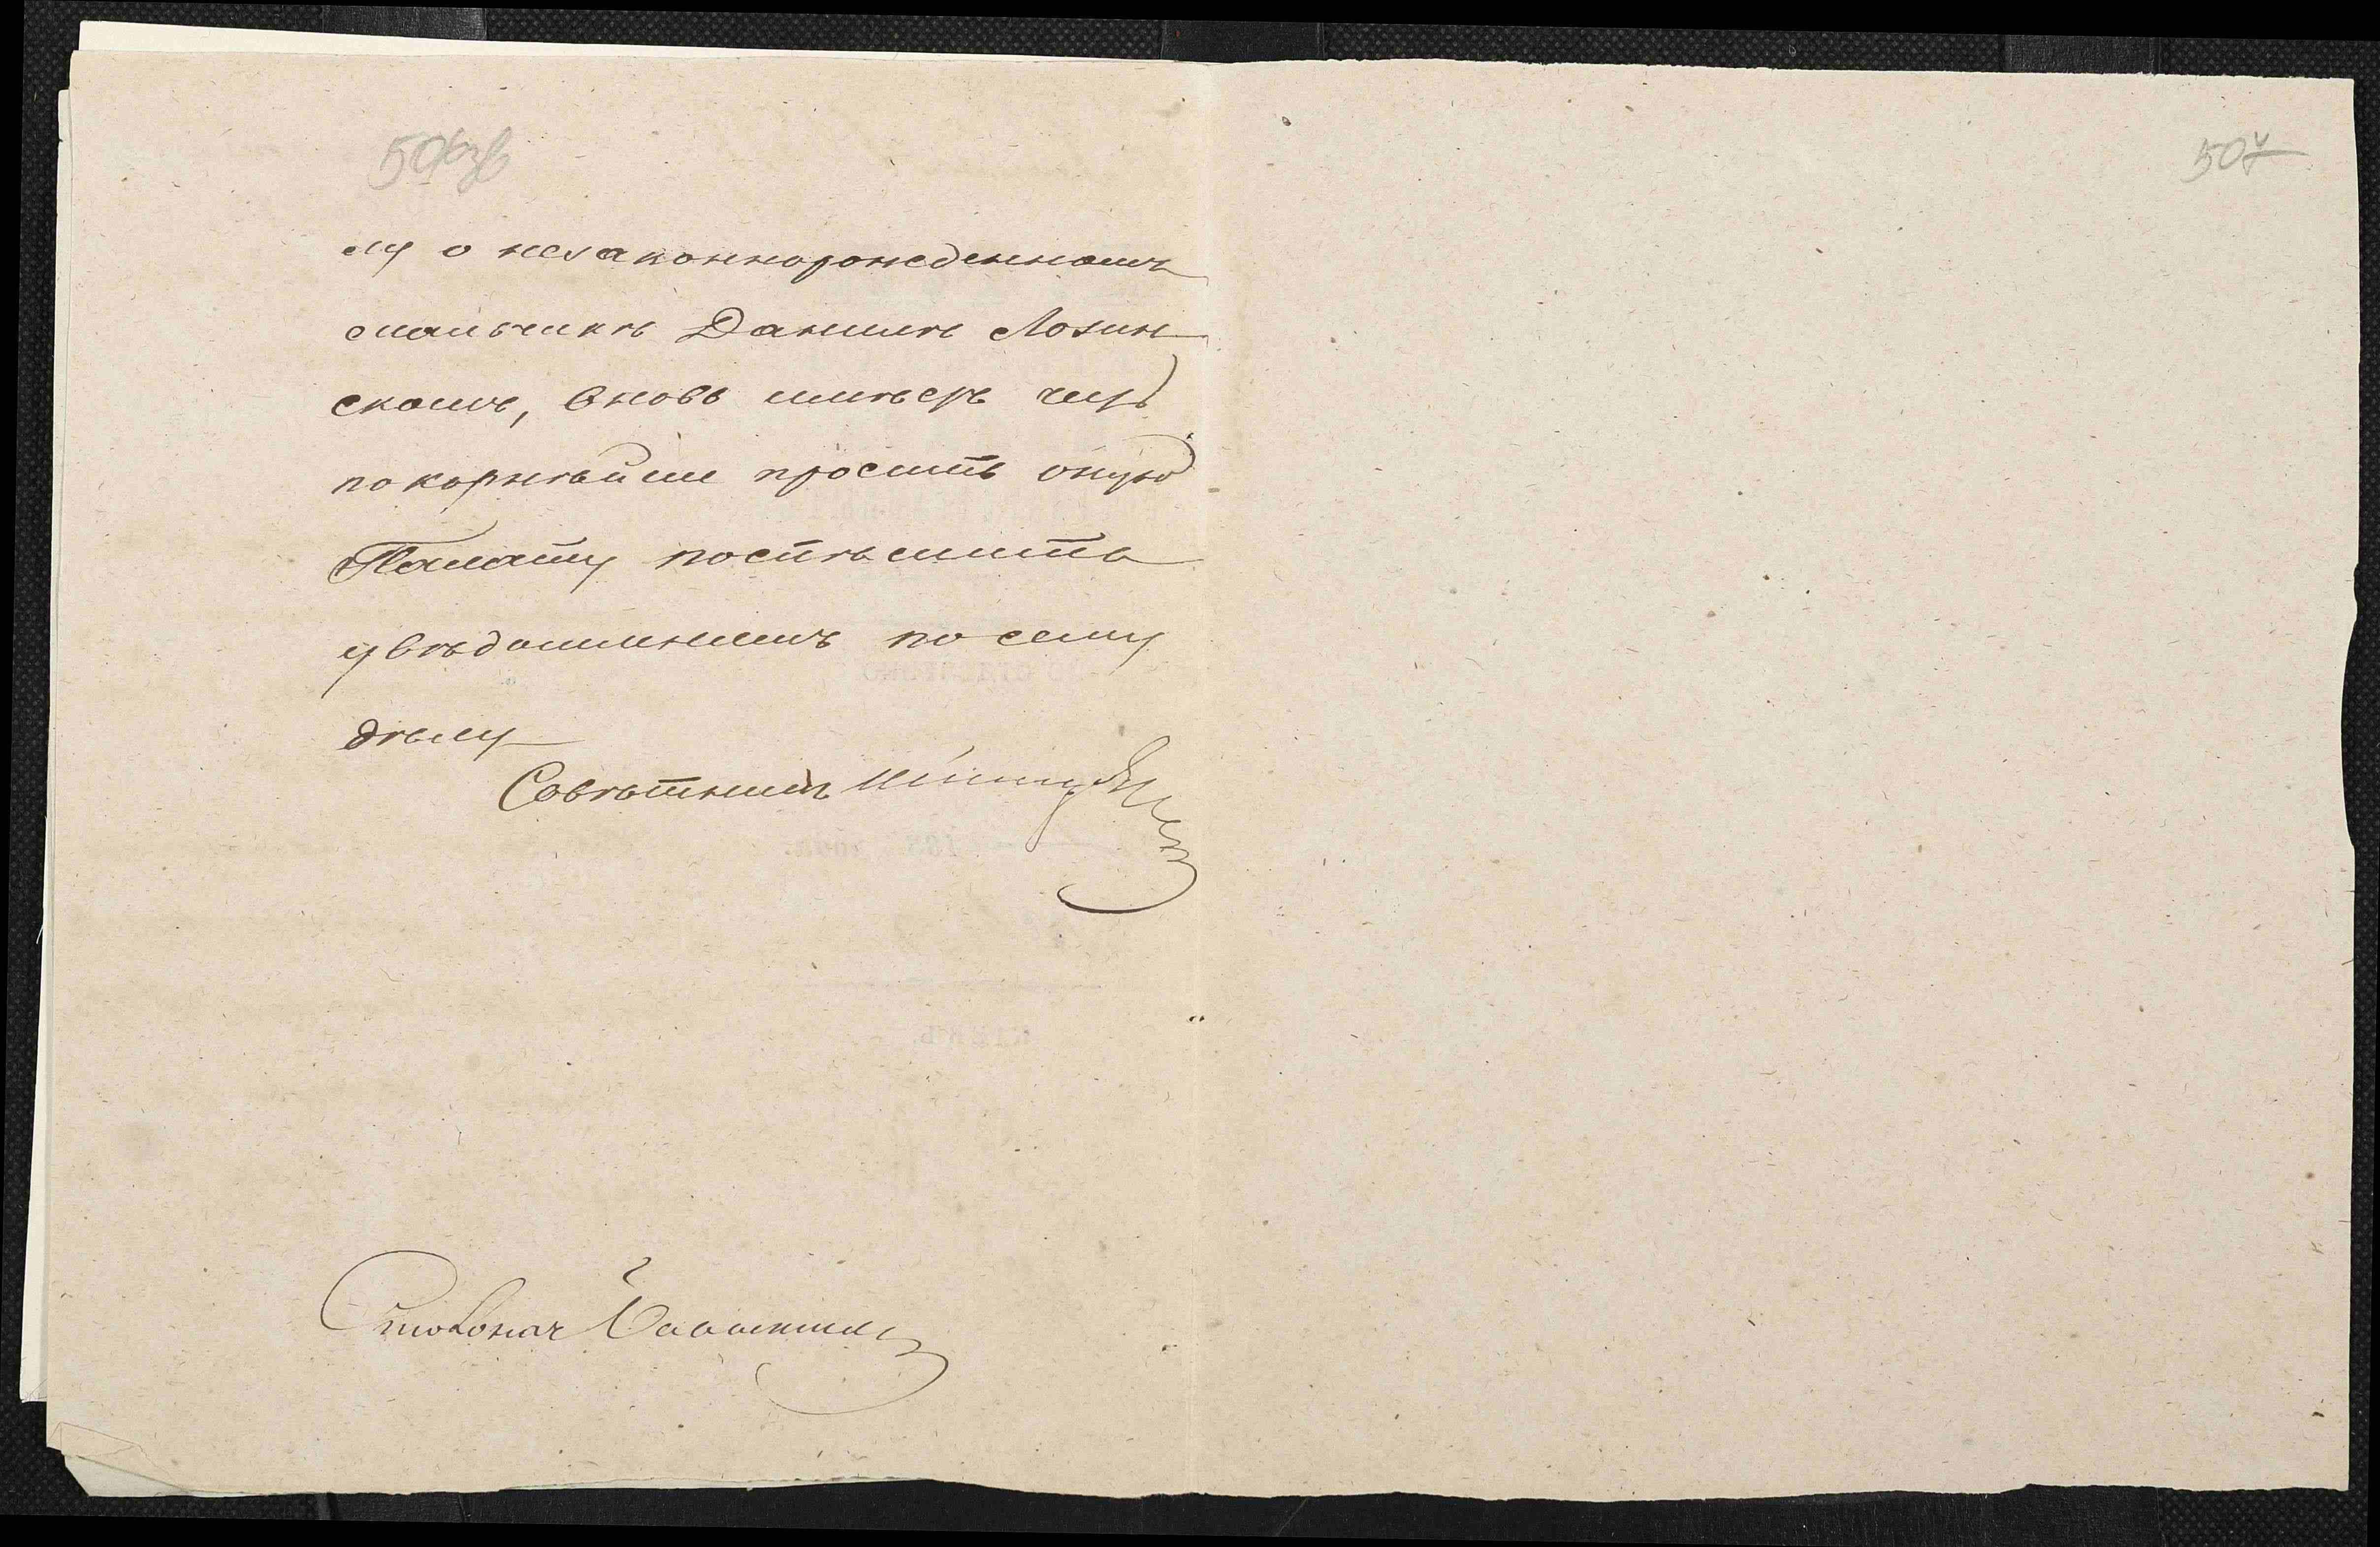 506зв
507
лу о незаконнорожденномъ
мальчикѣ Данилѣ Лозин
скомъ, вновь имѣетъ честь
покорнѣйше просить оную
Палату поспѣшить
увѣдомленіемъ по сему
дѣлу
Совѣтникъ
Столонач